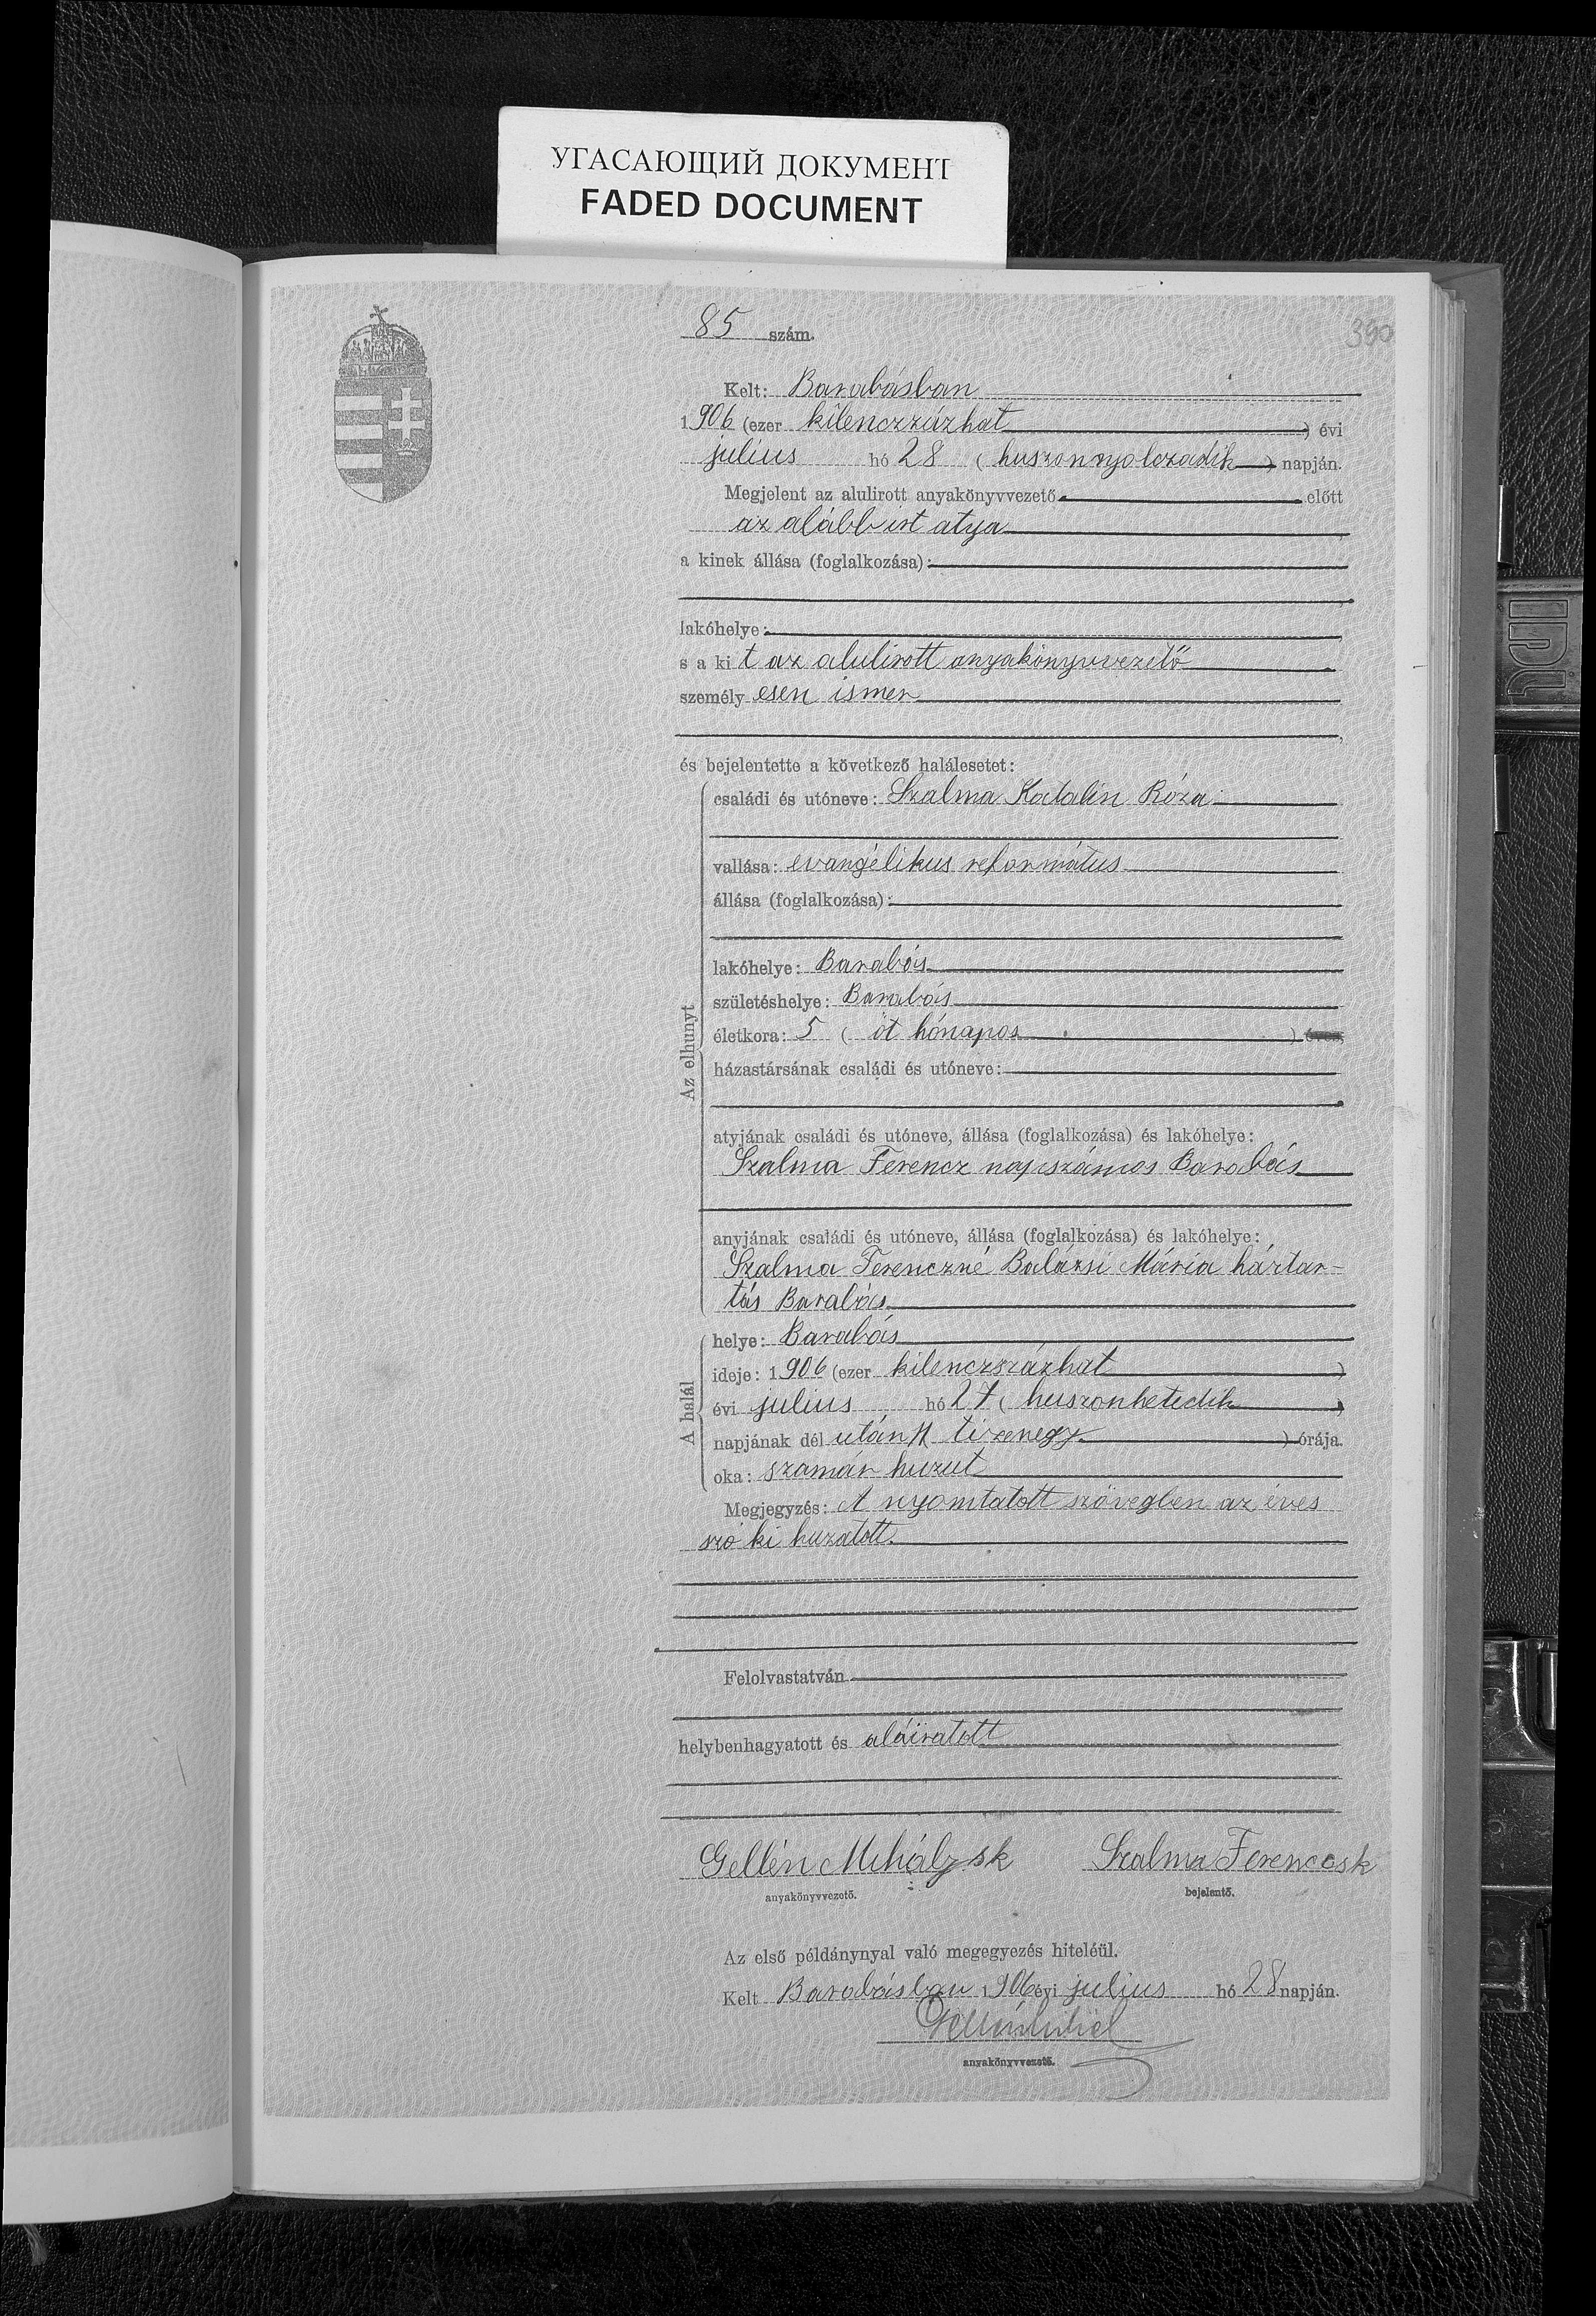 УГАСАЮЩИЙ ДОКУМЕНТ
FADED DOCUMENT
85 szám.
390
Kelt: Barabásban
1906 (ezer kilenczszázhat) évi
július hó 28 (huszonnyolczadik) napján.
Megjelent az alulirott anyakönyvvezető előtt
az alább irt atya
a kinek állása (foglalkozása):
lakóhelye:
s a kit az alulirott anyakönyvvezető
személyesen ismer
és bejelentette a következő halálesetet:
Az elhunyt
családi és utóneve: Szalma Katalin Róza
vallása: evangélikus református
állása (foglalkozása):
lakóhelye: Barabás
születéshelye: Barabás
életkora: 5 (öt hónapos) éves,
házastársának családi és utóneve:
atyjának családi és utóneve, állása (foglalkozása) és lakóhelye:
Szalma Ferencz napszámos Barabás
anyjának családi és utóneve, állása (foglalkozása) és lakóhelye:
Szalma Ferenczné Balázsi Mária háztar-
tás Barabás
A halál
helye: Barabás
ideje: 1906 (ezer kilenczszázhat)
évi július hó 27 (huszonhetedik)
napjának dél után 11 (tizenegy) órája.
oka: szamár hurut
Megjegyzés: A nyomtatott szövegben az éves
szó ki huzatott.
Felolvastatván
helybenhagyatott és aláiratott
Gellén Mihály sk Szalma Ferencz sk
anyakönyvvezető. bejelentő.
Az első példánynyal való megegyezés hiteléül.
Kelt Barabásban 1906 évi július hó 28 napján.
anyakönyvvezető.